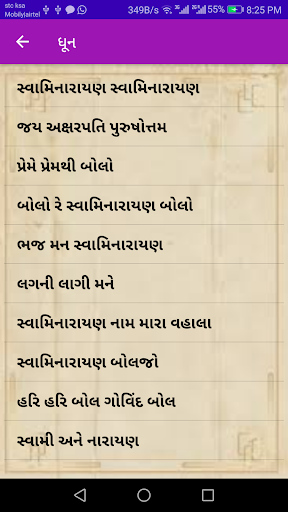 stc ksa
Mobily|airtel
349B/s 71% 8:25 PM
ધૂન
સ્વામિનારાયણ સ્વામિનારાયણ
જય અક્ષરપતિ પુરુષોત્તમ
પ્રેમે પ્રેમથી બોલો
બોલો રે સ્વામિનારાયણ બોલો
ભજ મન સ્વામિનારાયણ
લગની લાગી મને
સ્વામિનારાયણ નામ મારા વહાલા
સ્વામિનારાયણ બોલજો
હરિ હરિ બોલ ગોવિંદ બોલ
સ્વામી અને નારાયણ